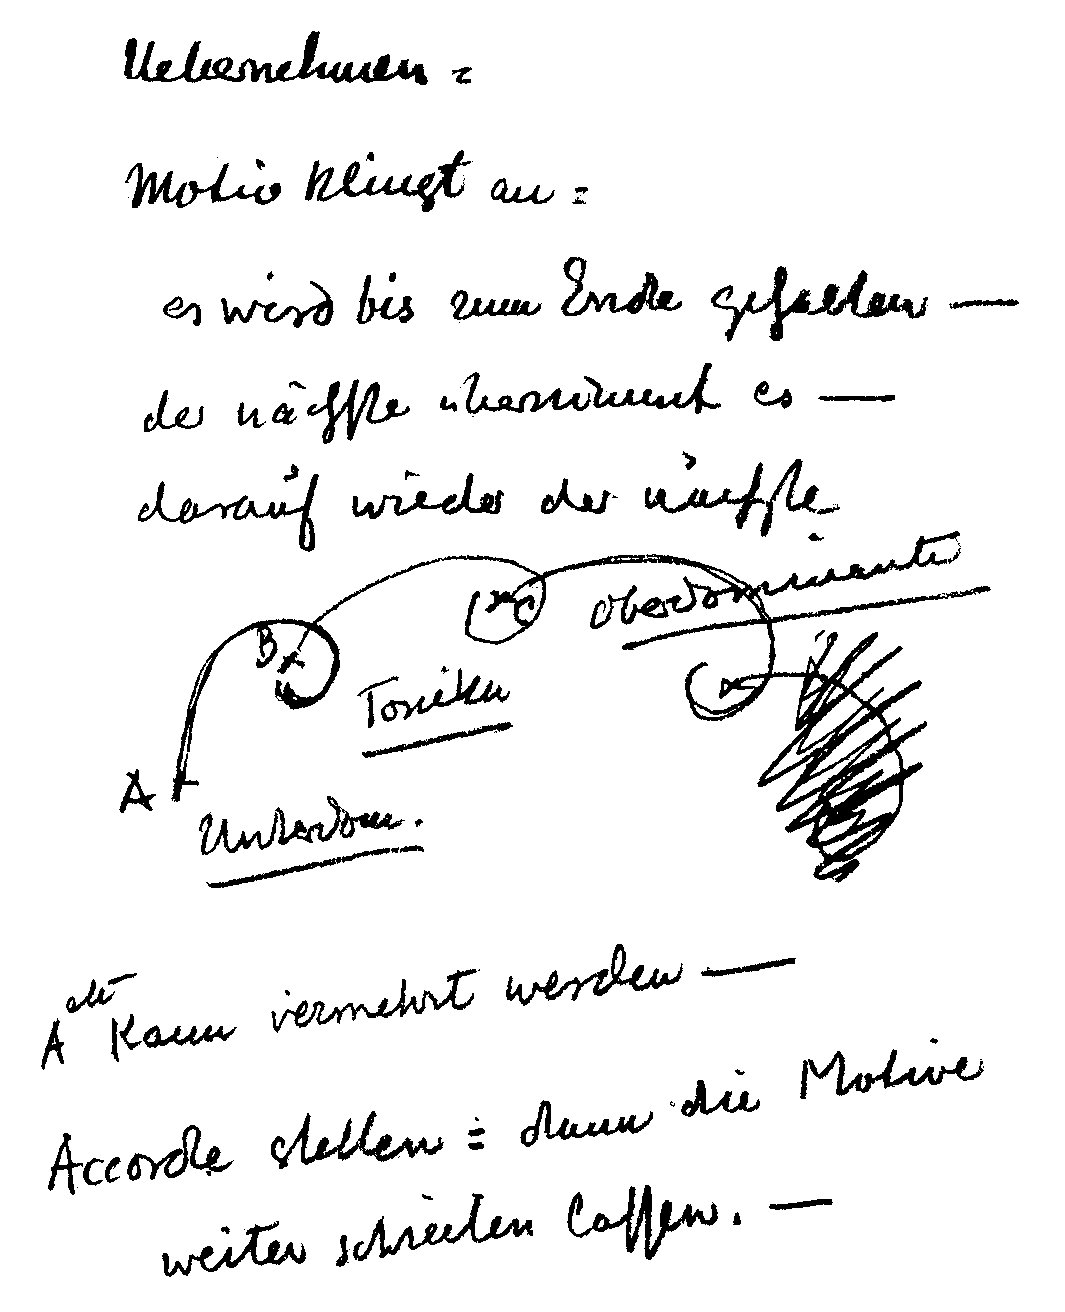 Uebernehmen =
Motiv klingt an =
es wird bis zum Ende gehalten —
der nächste übernimmt es —
darauf wieder der nächste
Oberdominante
C
B
Tonika
A
Unterdom.
A kann vermehrt werden —
Accorde stellen = dann die Motive
weiter schreiten lassen. —